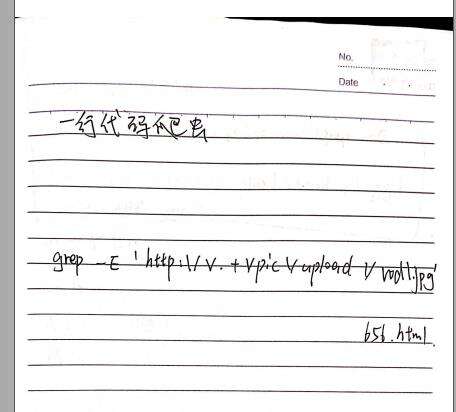 No.
Date
一行代码爬虫
grep -E 'http:\/\/.+\/pic\/upload\/vod\.jpg'
656.html.